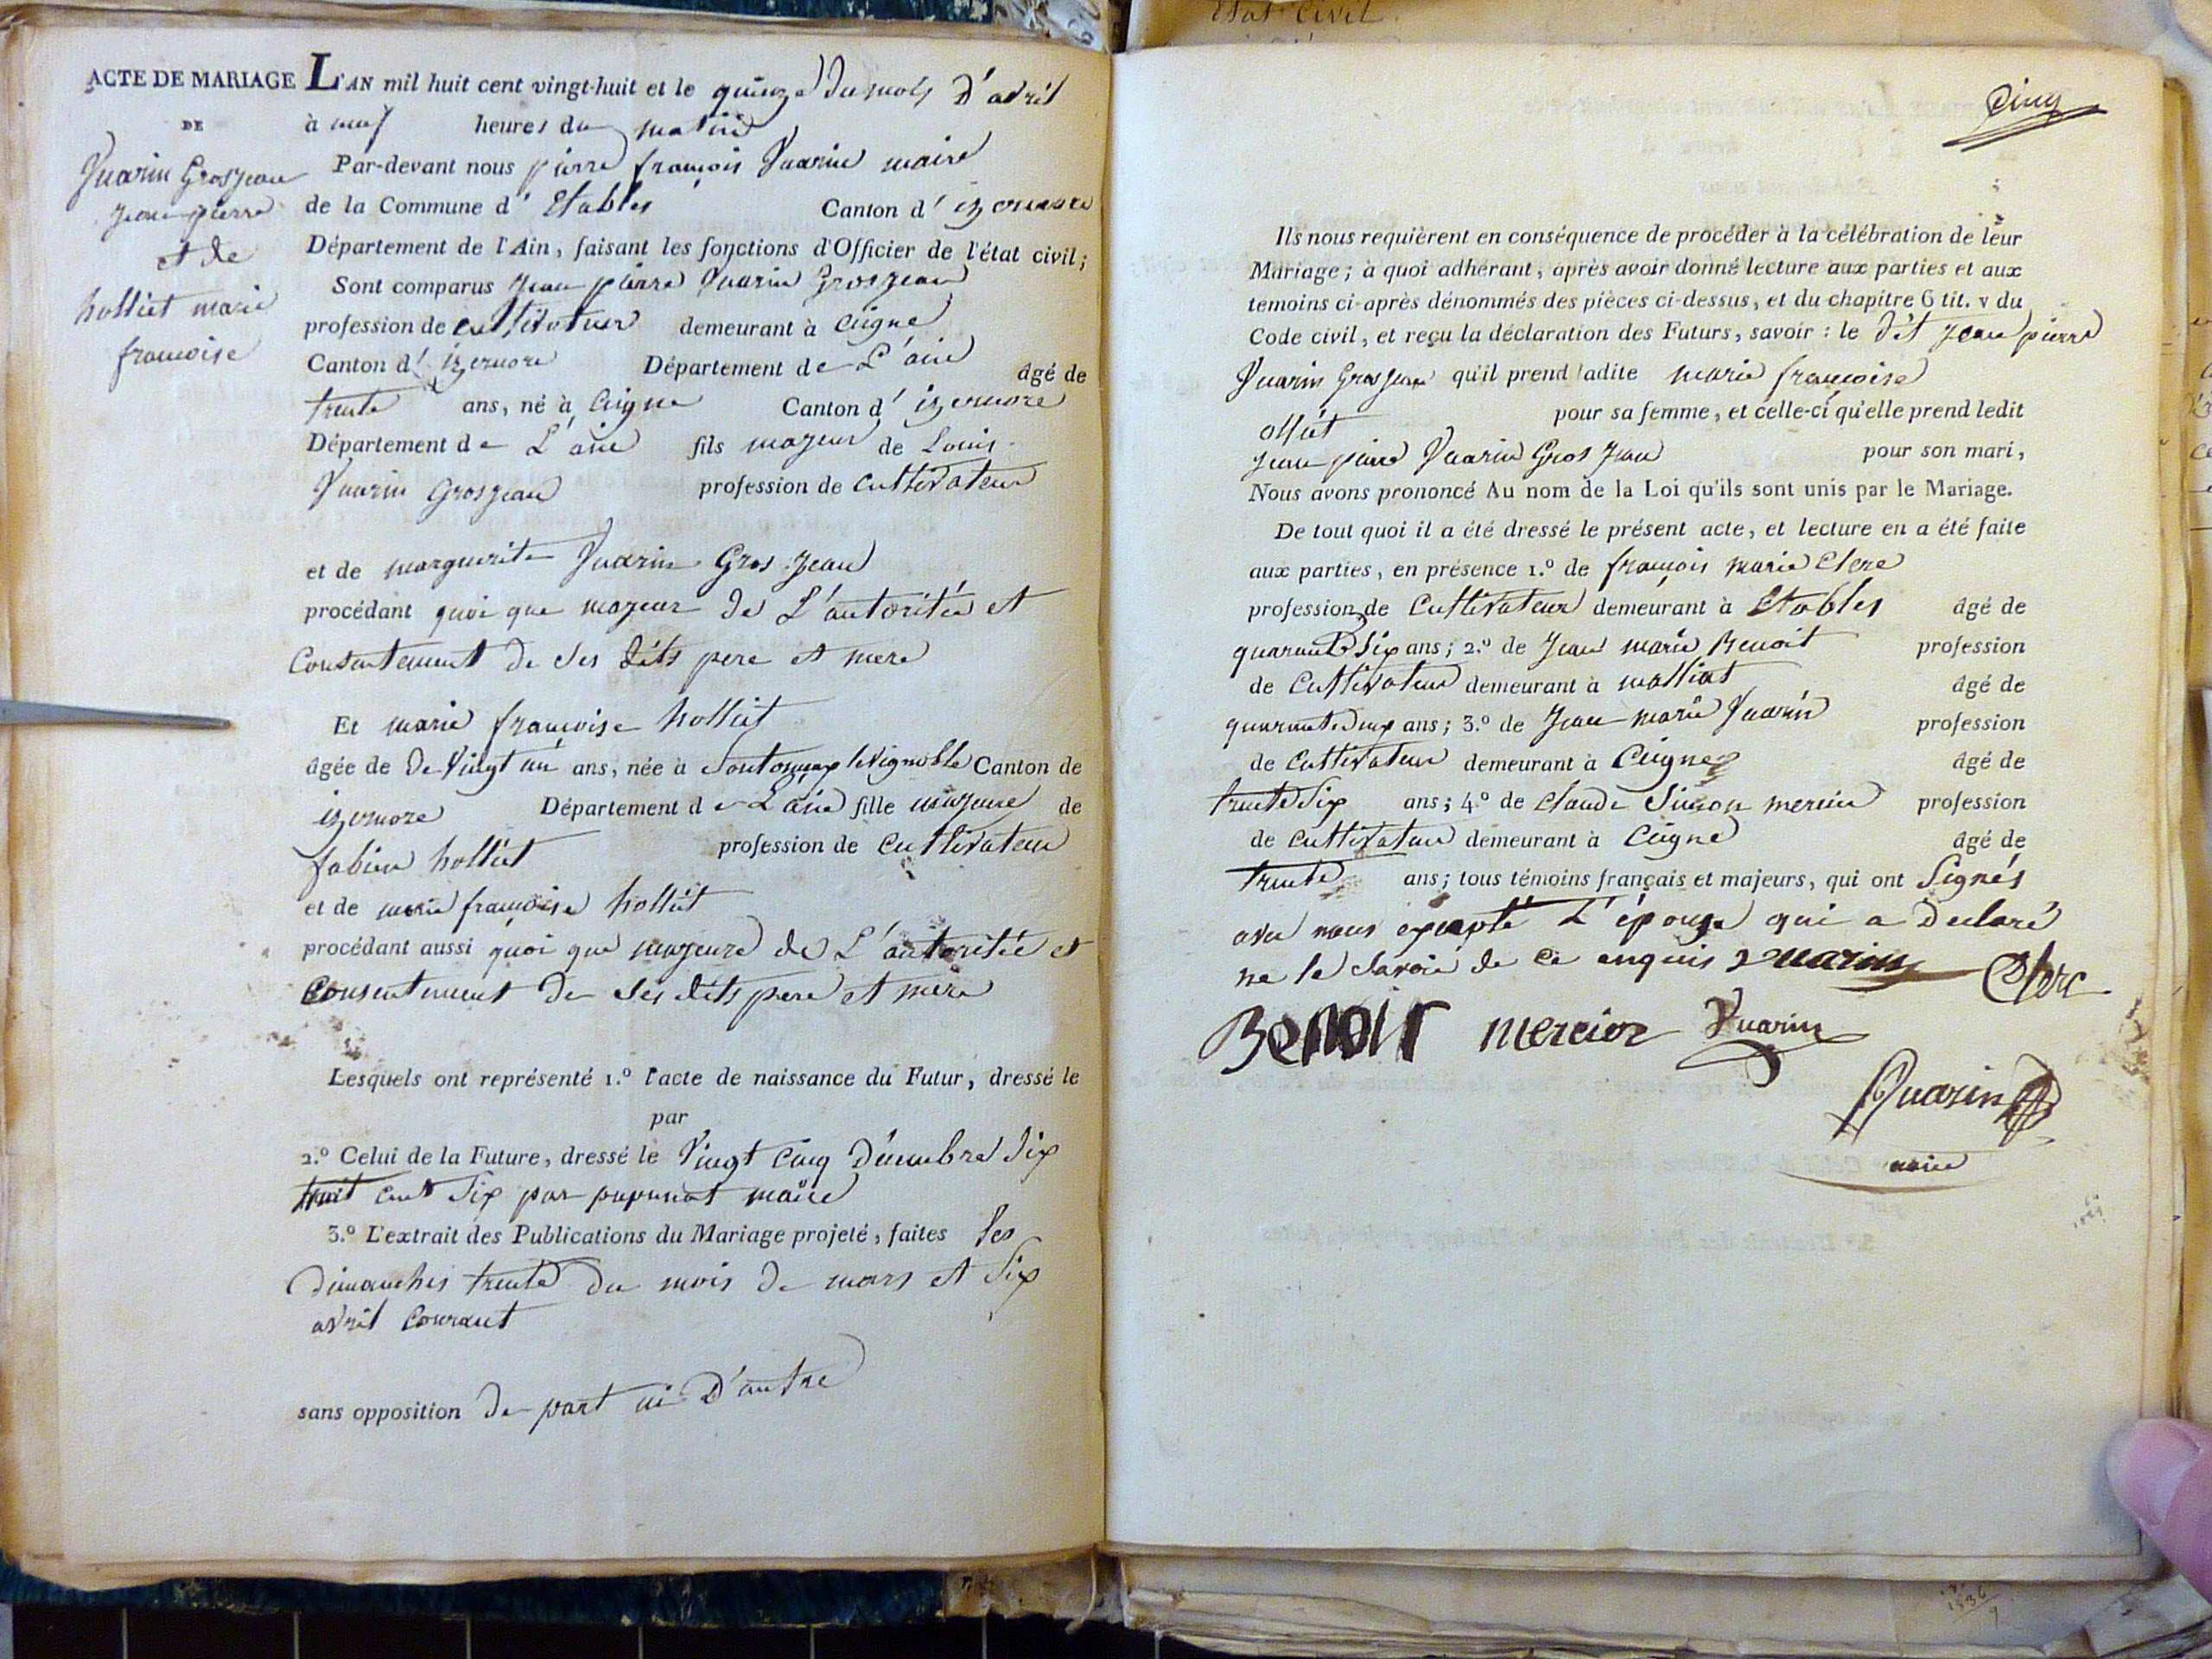 ACTE DE MARIAGE L'AN mil huit cent vingt-huit et le quinze du mois d'avril
DE
à neuf heures du matin
Par-devant nous pierre françois Vuarin maire
Vuarin Grosjean
jean pierre
et de
holliet marie
françoise
de la Commune d' Etables Canton d' izernore
Département de l'Ain, faisant les fonctions d'Officier de l'état civil;
Sont comparus jean pierre Vuarin Grosjean
profession de cultivateur demeurant à Ceigne
Canton d' izernore Département de L'ain âgé de
trente ans, né à Ceigne Canton d' izernore
Département de L'ain fils majeur de Louis
Vuarin Grosjean profession de cultivateur
et de marguerite Vuarin Gros jean
procédant quoi que majeur de L'autoritée et
Consentement de ses dits pere et mere
Et marie françoise holliet
âgée de de Vingt un ans, née à Sontonnax le Vignoble Canton de
izernore Département de L'ain fille majeure de
fabien holliet profession de Cultivateur
et de marie françoise holliet
procédant aussi quoi que majeure de L'autoritée et
Consentement de ses dits pere et mere
Lesquels ont représenté 1.º l'acte de naissance du Futur, dressé le
par
2.º Celui de la Future, dressé le Vingt Cinq Décembre dix
huit cent six par maire
3.º L'extrait des Publications du Mariage projeté, faites les
Dimanches trente du mois de mars et Six
avril Courant
sans opposition de part ni D'autre
Etat Civil
Cinq
Ils nous requièrent en conséquence de procéder à la célébration de leur
Mariage; à quoi adhérant, après avoir donné lecture aux parties et aux
temoins ci-après dénommés des pièces ci-dessus, et du chapitre 6 tit. v du
Code civil, et reçu la déclaration des Futurs, savoir : le dit jean pierre
Vuarin Grosjean qu'il prend ladite marie françoise
olliet pour sa femme, et celle-ci qu'elle prend ledit
jean pierre Vuarin Gros jean pour son mari,
Nous avons prononcé Au nom de la Loi qu'ils sont unis par le Mariage.
De tout quoi il a été dressé le présent acte, et lecture en a été faite
aux parties, en présence 1.º de françois marie Clerc
profession de Cultivateur demeurant à Etables âgé de
quarante Six ans; 2.º de Jean marie Benoit profession
de Cultivateur demeurant à molliat âgé de
quarante deux ans; 3.º de Jean marie Vuarin profession
de Cultivateur demeurant à Ceigne âgé de
trente Six ans; 4.º de Claude Simon mercier profession
de cultivateur demeurant à Ceigne âgé de
trente ans; tous témoins français et majeurs, qui ont Signés
avec nous excepté L'épouse qui a Declaré
ne le Savoir de ce enquis Vuarin Clerc
Benoit mercier Vuarin
Vuarin
maire
1836